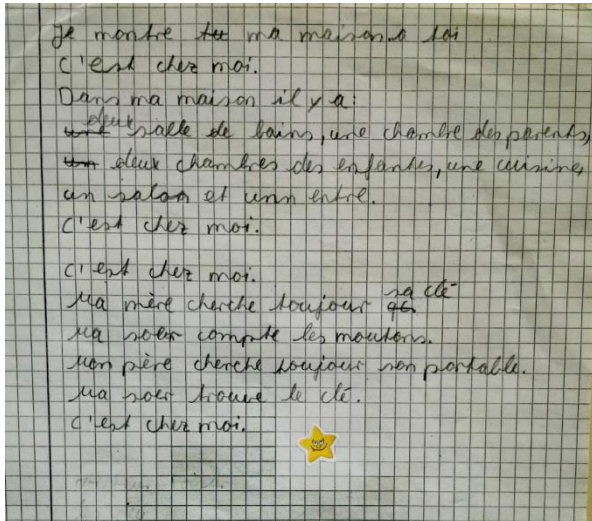 Je montre ma maison a toi
c'est chez moi.
Dans ma maison il y a:
deux salle de bains, une chambre des parents,
deux chambres des enfantes, une cuisine,
un salon et unn entre.
c'est chez moi.
c'est chez moi.
Ma mère cherche toujour sa clé
Ma soer compte les moutons.
Mon père cherche toujour son portable.
Ma soer trouve le clé.
c'est chez moi.